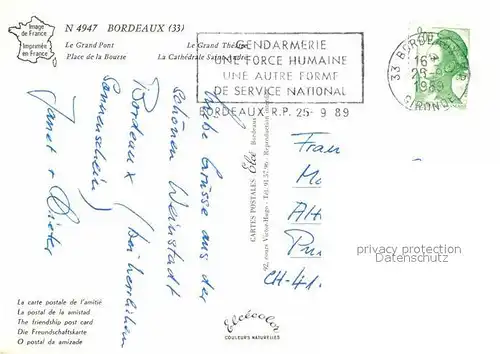 Image
de France
Imprimée
en France
N 4947 BORDEAUX (33)
Le Grand Pont Le Grand Théâtre
Place de la Bourse La Cathédrale Saint-André
GENDARMERIE
UNE FORCE HUMAINE
UNE AUTRE FORME
DE SERVICE NATIONAL
BORDEAUX R.P. 25- 9 89
33 BORDEAUX
16
1989
GIRONDE
Liebe Grüsse aus der
schönen Weinstadt
Bordeaux (bei herrlichem
Sonnenschein)
Janet + Dieter
CARTES POSTALES Elcé Bordeaux
92, cours Victor-Hugo - Tél. 91.57.06 - Reproduction
Frau
CH-41
privacy protection
Datenschutz
La carte postale de l'amitié
La postal de la amistad
The friendship post card
Die Freundschaftskarte
O postal da amizade
Elcécolor
COULEURS NATURELLES